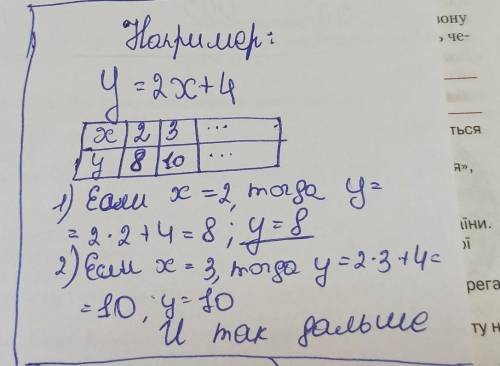 Например:
y = 2x+4
x 2 3 ...
y 8 10 ...
1) Если x = 2, тогда y =
= 2·2+4 = 8 ; y = 8
2) Если x = 3, тогда y = 2·3+4 =
= 10, y = 10
И так дальше
ону
, че-
ться
я»,
їни.
ої
рега
ту н